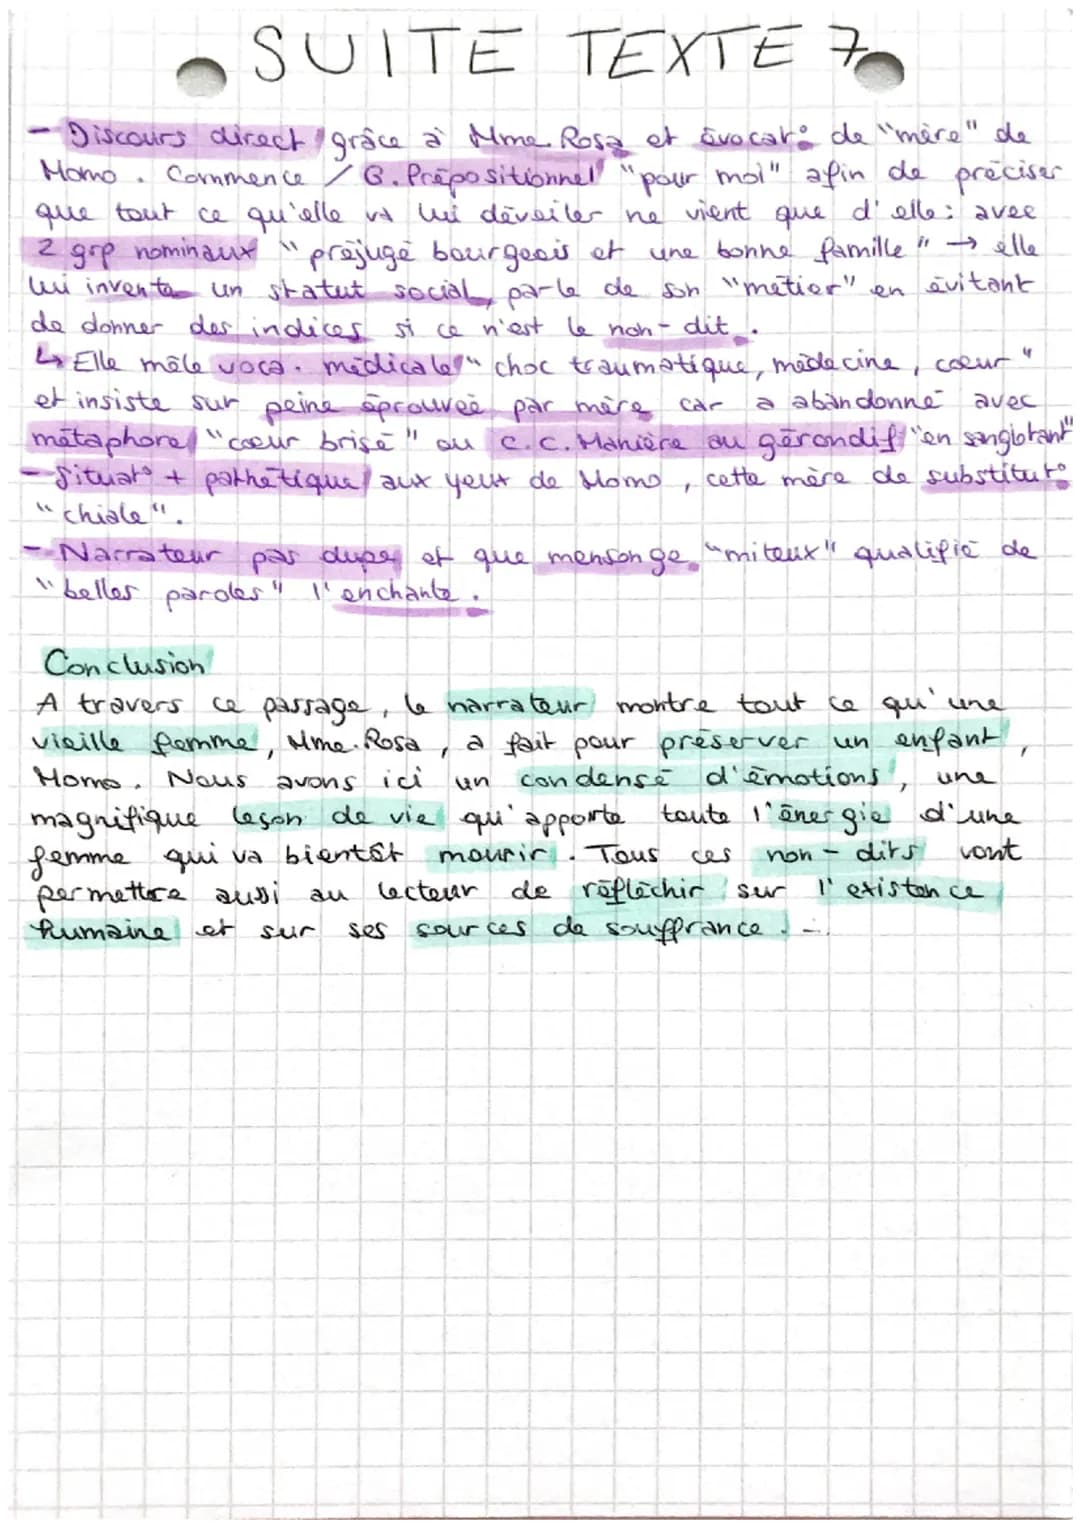 SUITE TEXTE 7
- Discours direct grâce à Mme Rosa et évocat° de "mère" de
Momo. Commence / G. Prépositionnel "pour moi" afin de préciser
que tout ce qu'elle va lui dévoiler ne vient que d'elle : avec
2 grp nominaux "préjugé bourgeois et une bonne famille" → elle
lui invente un statut social, parle de son "métier" en évitant
de donner des indices si ce n'est le non-dit.
↳ Elle mêle voca. médicale "choc traumatique, médecine, cœur"
et insiste sur peine éprouvée par mère car a abandonné avec
métaphore "cœur brisé" ou C.C. Manière au gérondif "en sanglotant"
- Situat° + pathétique aux yeux de Momo, cette mère de substitut°
"chiale".
- Narrateur pas dupe et que mensonge "miteux" qualifié de
"belles paroles" l'enchante.
Conclusion
A travers ce passage, le narrateur montre tout ce qu'une
vieille femme, Mme. Rosa, a fait pour préserver un enfant,
Momo. Nous avons ici un condensé d'émotions, une
magnifique leçon de vie qu'apporte toute l'énergie d'une
femme qui va bientôt mourir. Tous ces non-dits vont
permettre aussi au lecteur de réfléchir sur l'existence
humaine et sur ses sources de souffrance. -.